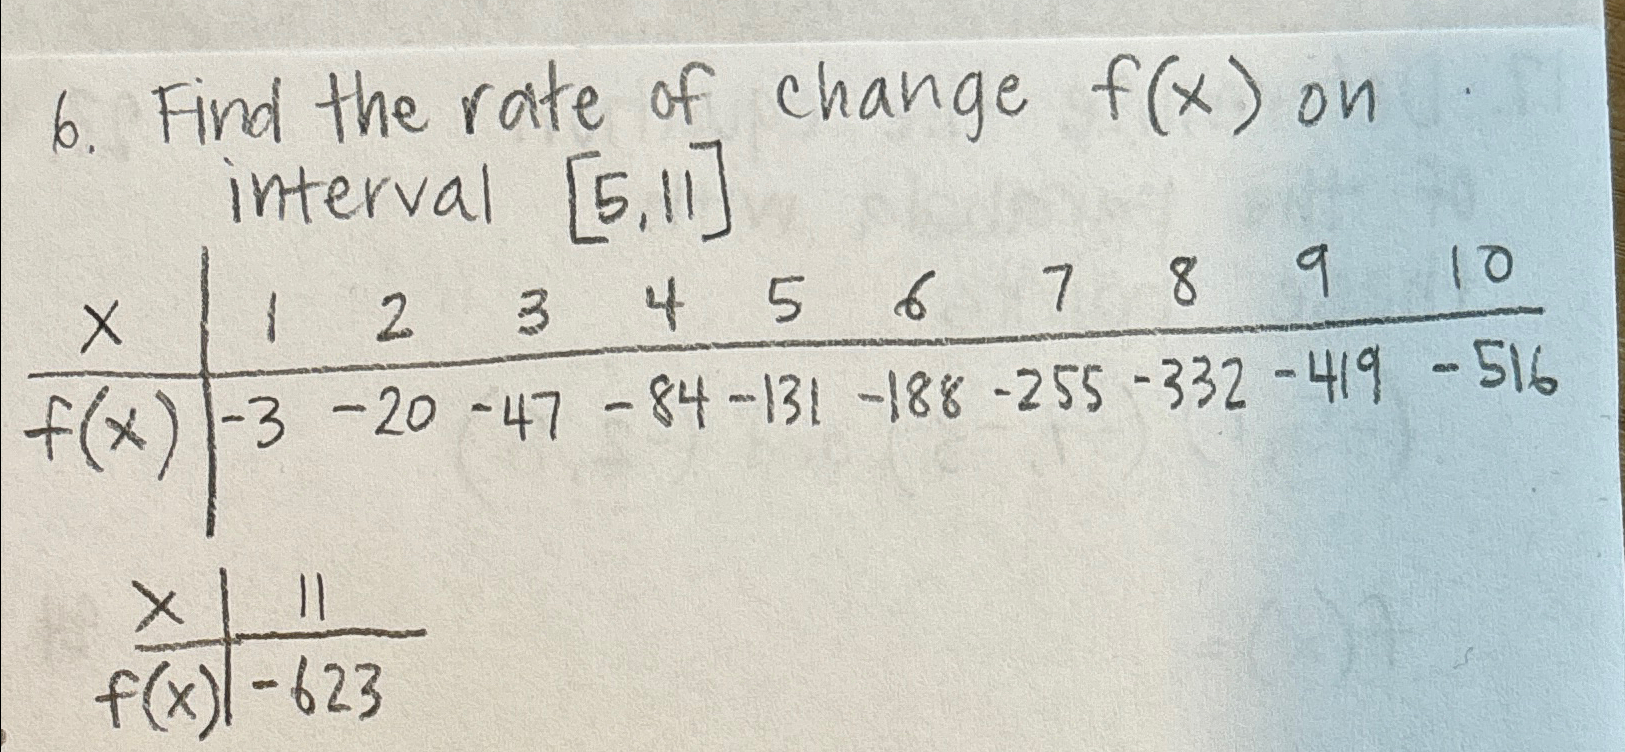 6. Find the rate of change f(x) on
interval [5,11]
x 1 2 3 4 5 6 7 8 9 10
f(x) -3 -20 -47 -84 -131 -188 -255 -332 -419 -516
x 11
f(x) -623